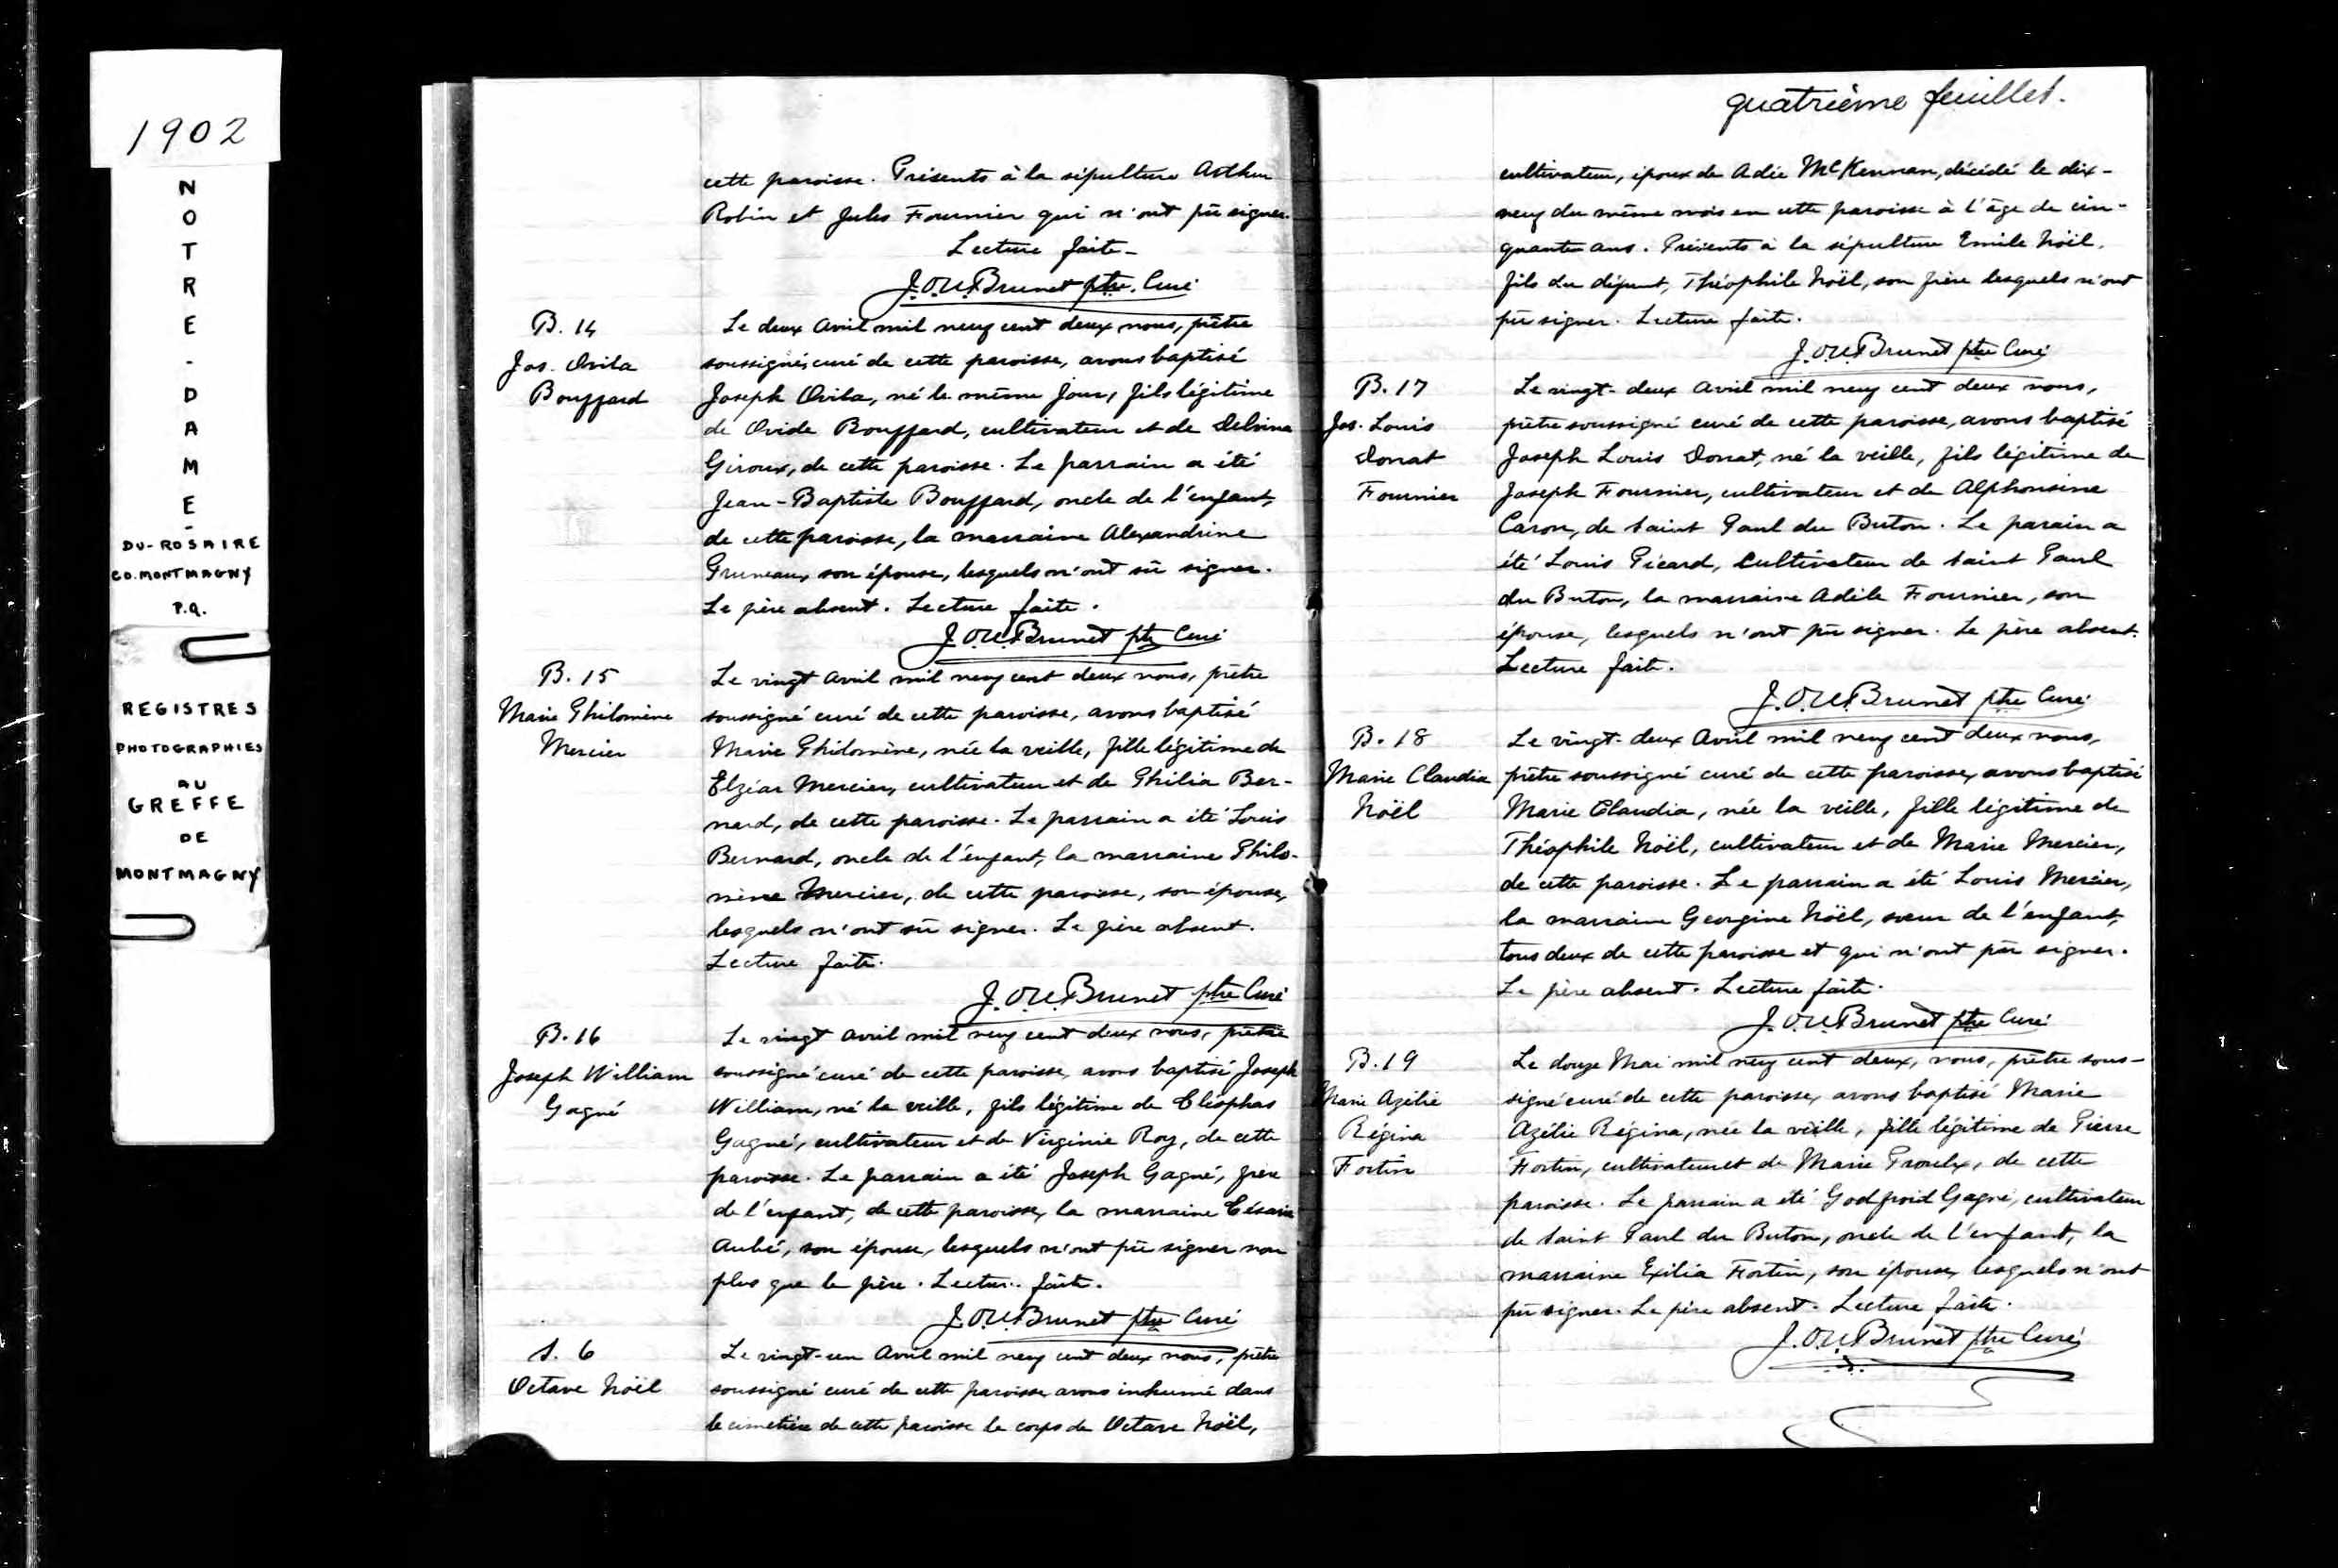 1902
NOTRE-DAME-
DU-ROSAIRE
CO. MONTMAGNY
P.Q.
REGISTRES
PHOTOGRAPHIES
AU
GREFFE
DE
MONTMAGNY
cette paroisse. Présents à la sépulture Arthur
Robin et Jules Fournier qui n'ont pû signer.
Lecture faite-
J.O.U.Brunet ptre. Curé
B. 14
Jos. Ovila
Bouffard
Le deux Avril mil neuf cent deux nous, prêtre
soussigné, curé de cette paroisse, avons baptisé
Joseph Ovila, né le même jour, fils légitime
de Ovide Bouffard, cultivateur et de Delvina
Giroux, de cette paroisse. Le parrain a été
Jean-Baptiste Bouffard, oncle de l'enfant,
de cette paroisse, la marraine Alexandrine
Pruneau, son épouse, lesquels n'ont sû signer.
Le père absent. Lecture faite.
J.O.U.Brunet ptre Curé
B. 15
Marie Philomène
Mercier
Le vingt Avril mil neuf cent deux nous, prêtre
soussigné curé de cette paroisse, avons baptisé
Marie Philomène, née la veille, fille légitime de
Elzéar Mercier, cultivateur et de Philia Ber-
nard, de cette paroisse. Le parrain a été Louis
Bernard, oncle de l'enfant, la marraine Philo-
mène Mercier, de cette paroisse, son épouse,
lesquels n'ont sû signer. Le père absent.
Lecture faite.
J.O.U.Brunet ptre Curé
B. 16
Joseph William
Gagné
Le vingt Avril mil neuf cent deux nous, prêtre
soussigné curé de cette paroisse, avons baptisé Joseph
William, né la veille, fils légitime de Cléophas
Gagné, cultivateur et de Virginie Roy, de cette
paroisse. Le parrain a été Joseph Gagné, frère
de l'enfant, de cette paroisse, la marraine Césarie
Aubé, son épouse, lesquels n'ont pû signer non
plus que le père. Lecture faite.
J.O.U.Brunet ptre Curé
S. 6
Octave Noël
Le vingt-un Avril mil neuf cent deux nous, prêtre
soussigné curé de cette paroisse avons inhumé dans
le cimetière de cette paroisse le corps de Octave Noël,
quatrième feuillet.
cultivateur, époux de Adée McKennan, décédé le dix-
neuf du même mois en cette paroisse à l'âge de cin-
quante ans. Présents à la sépulture Emile Noël,
fils du défunt, Théophile Noël, son frère lesquels n'ont
pû signer. Lecture faite.
J.O.U.Brunet ptre Curé
B. 17
Jos. Louis
Donat
Fournier
Le vingt-deux Avril mil neuf cent deux nous,
prêtre soussigné curé de cette paroisse, avons baptisé
Joseph Louis Donat, né la veille, fils légitime de
Joseph Fournier, cultivateur et de Alphonsine
Caron, de Saint Paul du Buton. Le parain a
été Louis Picard, Cultivateur de Saint Paul
du Buton, la marraine Adèle Fournier, son
épouse, lesquels n'ont pû signer. Le père absent.
Lecture faite.
J.O.U.Brunet ptre Curé
B. 18
Marie Claudia
Noël
Le vingt-deux Avril mil neuf cent deux nous,
prêtre soussigné curé de cette paroisse, avons baptisé
Marie Claudia, née la veille, fille légitime de
Théophile Noël, cultivateur et de Marie Mercier,
de cette paroisse. Le parrain a été Louis Mercier,
la marraine Georgine Noël, sœur de l'enfant,
tous deux de cette paroisse et qui n'ont pû signer.
Le père absent. Lecture faite.
J.O.U.Brunet ptre Curé
B. 19
Marie Azélie
Régina
Fortin
Le douze Mai mil neuf cent deux, nous, prêtre sous-
signé curé de cette paroisse, avons baptisé Marie
Azélie Régina, née la veille, fille légitime de Pierre
Fortin, cultivateur et de Marie Proulx, de cette
paroisse. Le parrain a été Godfroid Gagné, cultivateur
de Saint Paul du Buton, oncle de l'enfant, la
marraine Exilia Fortin, son épouse, lesquels n'ont
pû signer. Le père absent. Lecture faite.
J.O.U.Brunet ptre Curé